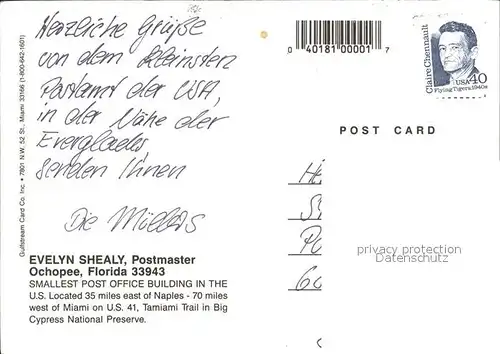 Herzliche Grüße
von dem kleinsten
Postamt der USA,
in der Nähe der
Everglades
senden Ihnen
Die Müllers
EVELYN SHEALY, Postmaster
Ochopee, Florida 33943
SMALLEST POST OFFICE BUILDING IN THE
U.S. Located 35 miles east of Naples - 70 miles
west of Miami on U.S. 41, Tamiami Trail in Big
Cypress National Preserve.
Gulfstream Card Co. Inc. • 7801 N.W. 52 St., Miami 33166 (1-800-642-1601)
0 40181 00001 7
Claire Chennault
USA 40
Flying Tigers 1940s
POST CARD
privacy protection
by